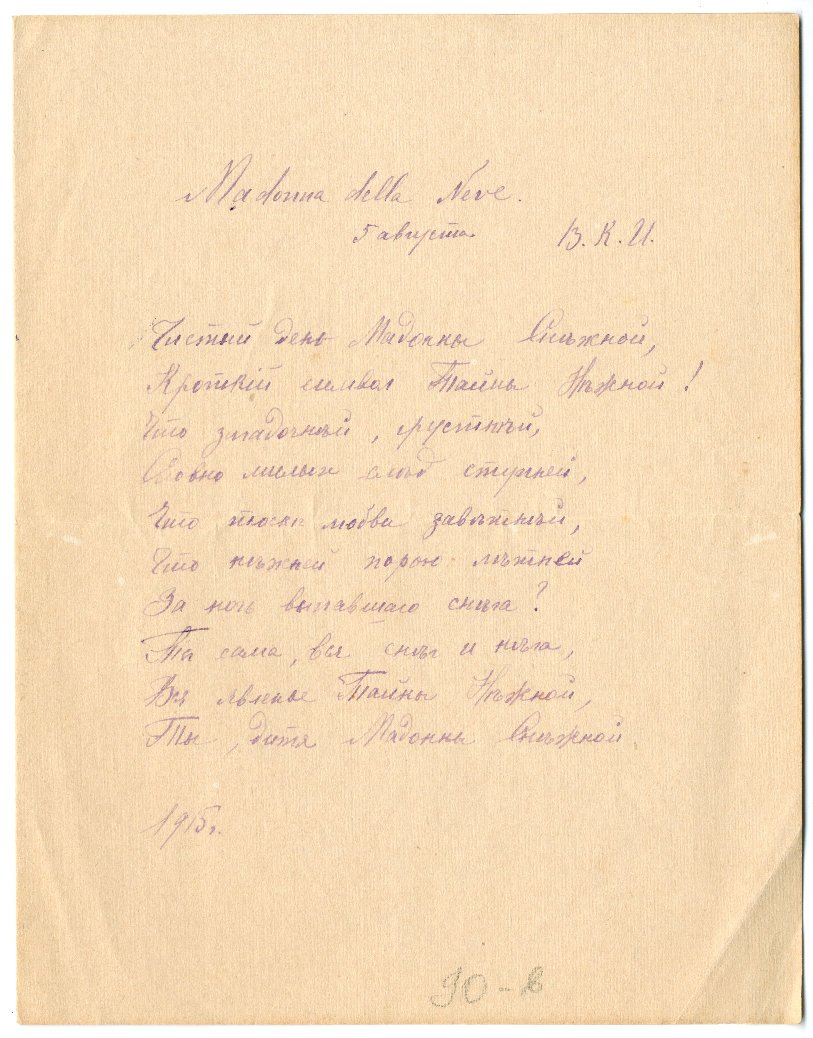 Madonna della Neve.
5 августа. В. К. И.
Чистый день Мадонны Снѣжной,
Кроткій символ Тайны Нѣжной!
Что загадочнѣй, грустнѣй,
Словно милых слѣд ступней,
Что тоски любви завѣтнѣй,
Что нѣжнѣй порою лѣтней
За ночь выпавшаго снѣга?
Ты сама, вся снѣг и нѣга,
Вся явленье Тайны Нѣжной,
Ты, дитя Мадонны Снѣжной
1915г.
90-в